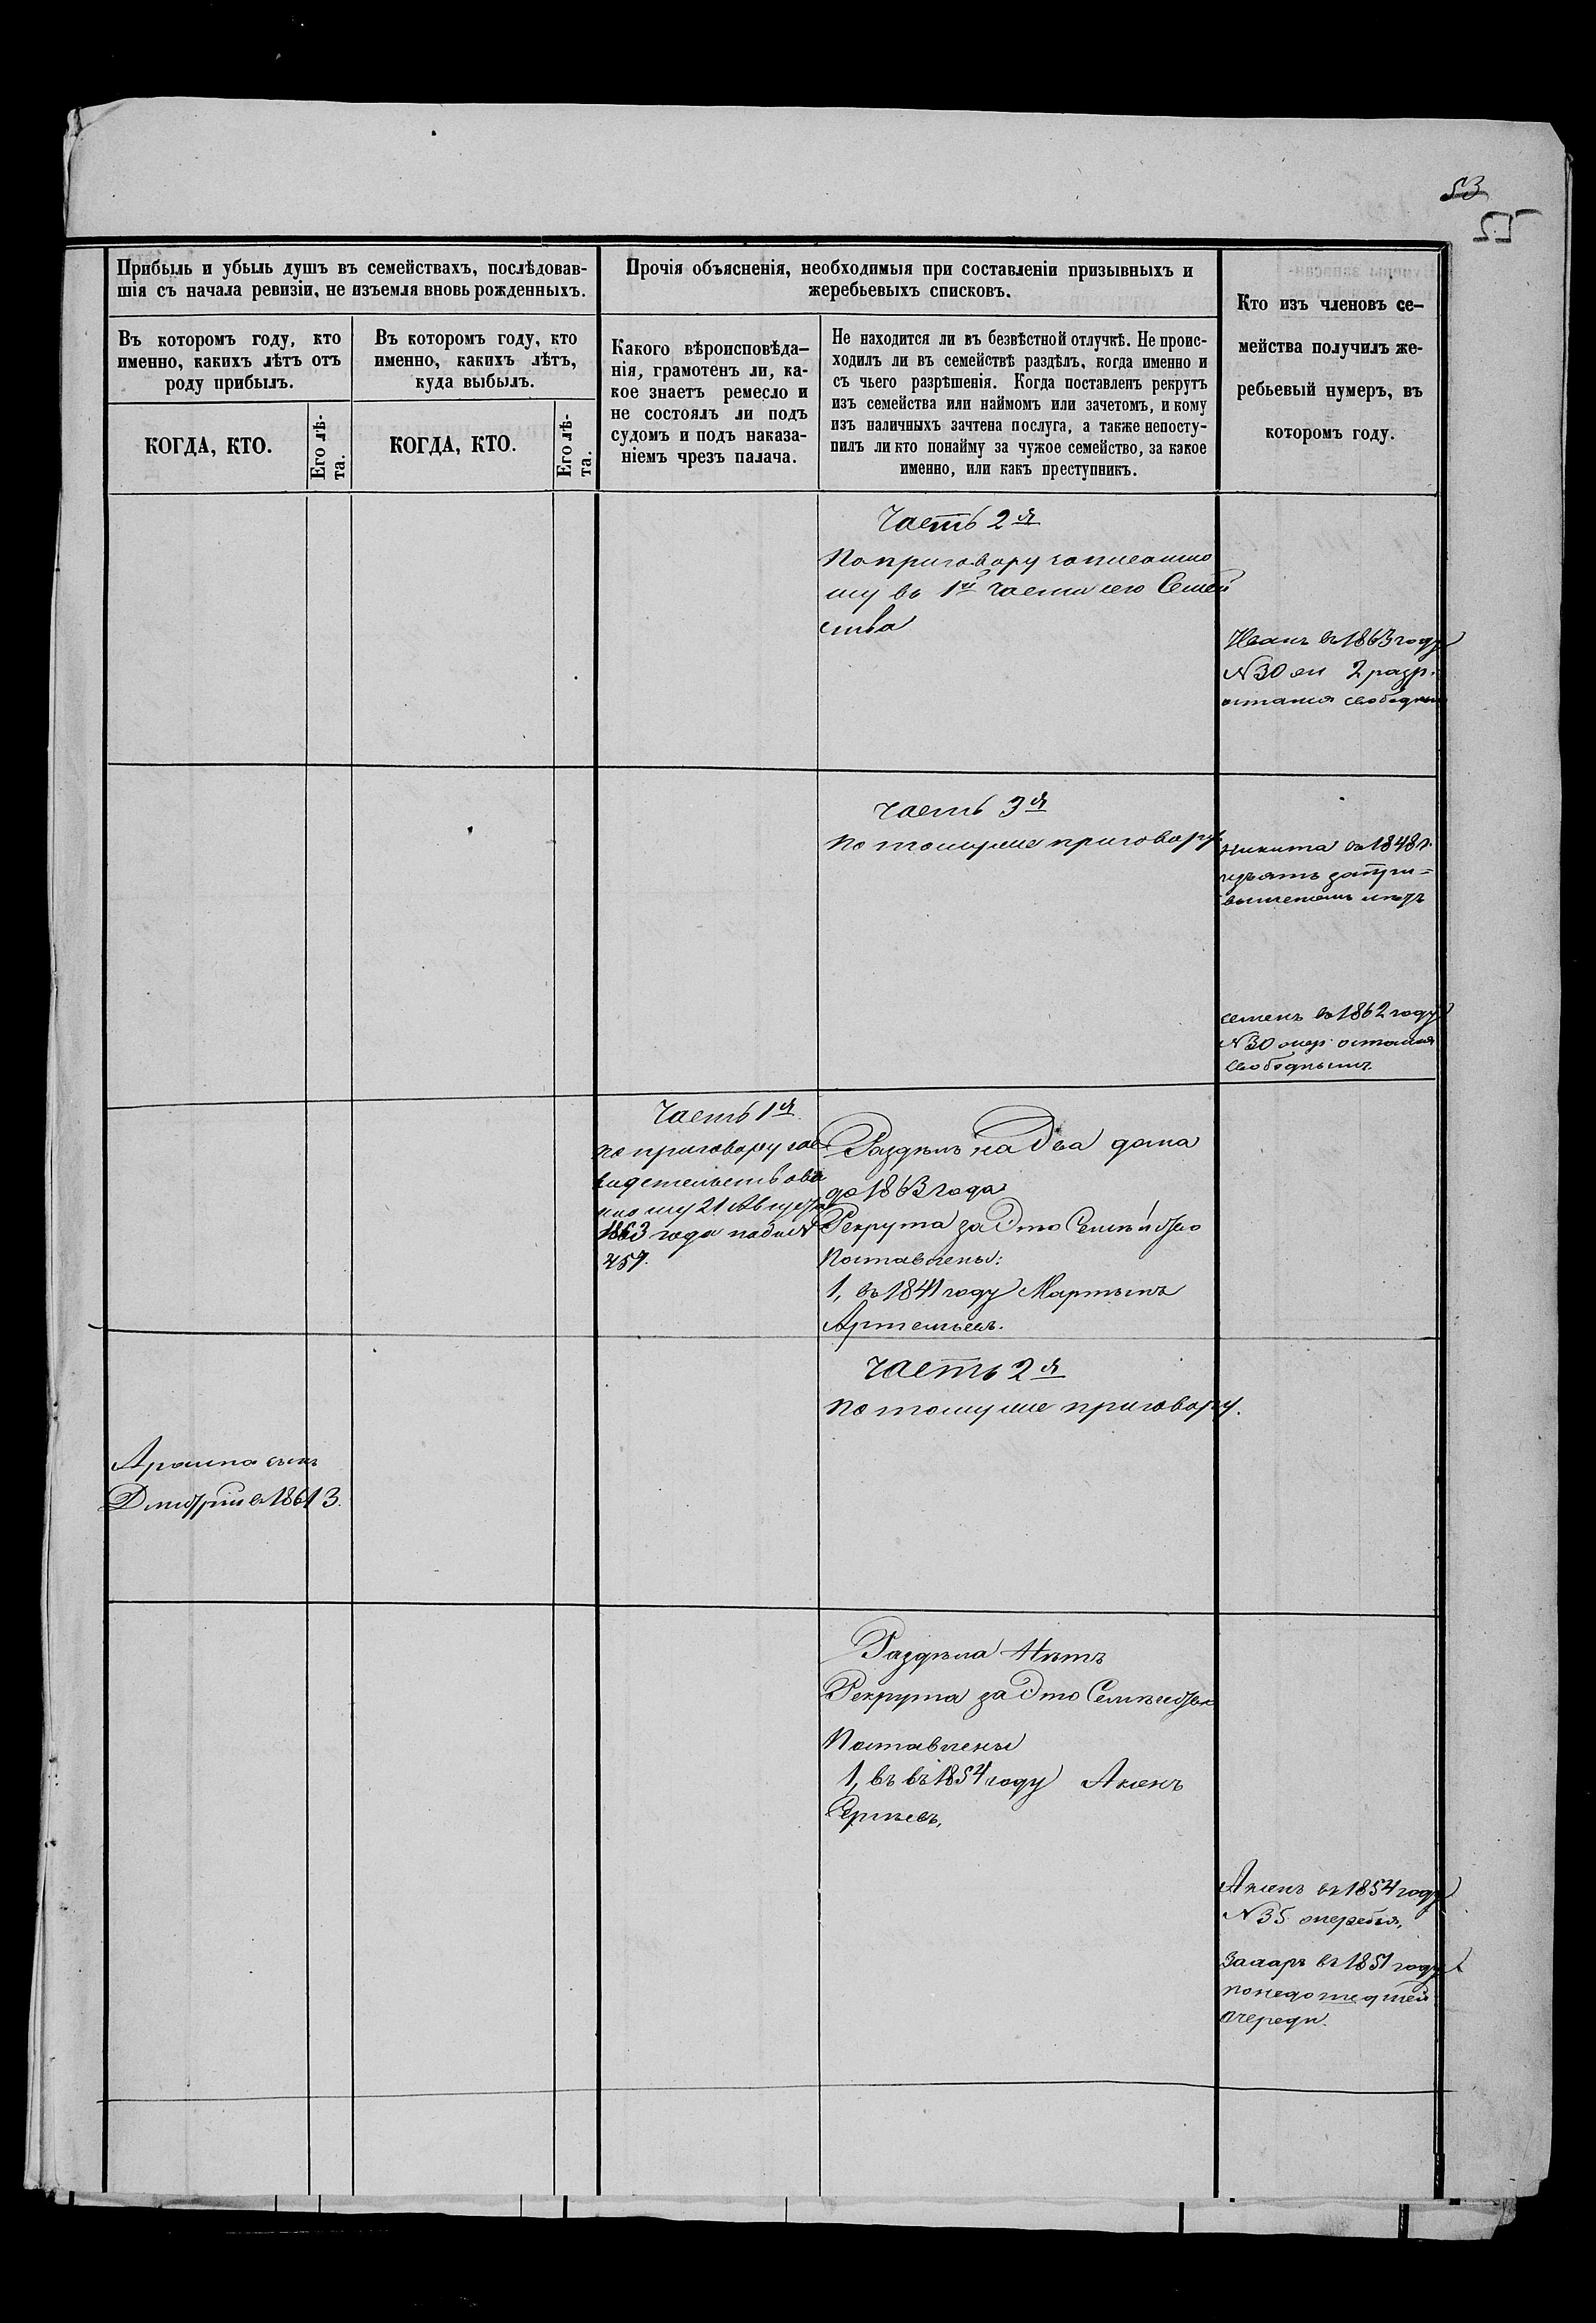 53
55
Прибыль и убыль душъ въ семействахъ, послѣдовав-
шія съ начала ревизіи, не изъемля вновь рожденныхъ.
Прочія объясненія, необходимыя при составленіи призывныхъ и
жеребьевыхъ списковъ.
Кто изъ членовъ се-
мейства получилъ же-
ребьевый нумеръ, въ
которомъ году.
Въ которомъ году, кто
именно, какихъ лѣтъ отъ
роду прибылъ.
Въ которомъ году, кто
именно, какихъ лѣтъ,
куда выбылъ.
Какого вѣроисповѣда-
нія, грамотенъ ли, ка-
кое знаетъ ремесло и
не состоялъ ли подъ
судомъ и подъ наказа-
ніемъ чрезъ палача.
Не находится ли въ безвѣстной отлучкѣ. Не проис-
ходилъ ли въ семействѣ раздѣлъ, когда именно и
съ чьего разрѣшенія. Когда поставленъ рекрутъ
изъ семейства или наймомъ или зачетомъ, и кому
изъ наличныхъ зачтена послуга, а также непосту-
пилъ ли кто понайму за чужое семейство, за какое
именно, или какъ преступникъ.
КОГДА, КТО.
Его лѣ-
та.
КОГДА, КТО.
Его лѣ-
та.
Часть 2я
По приговору записанно
му въ 1й части сего Семей
ства
Иванъ въ 1863 году
N 30 2 разр.
остался свободнымъ
Часть 3я
По томуже приговору
Никита въ 1848 г.
изъятъ
семенъ въ 1862 году
N 30 остался
свободнымъ
Часть 1я
по приговору зас
видетельствова
нному 21 Августа
1863 года подъ N
257.
Раздѣлъ на Два дома
до 1863 года
Рекрута за Это Семѣйство
Поставлены:
1, въ 1841 году Мартынъ
Артемьевъ.
Часть 2я
По томуже приговору.
сынъ
Дмитрій в 1861 3.
Раздѣла Нѣтъ
Рекрута за Это Семѣйство
Поставлены
1, въ въ 1854 году Аксенъ
Сергѣевъ,
Аксенъ въ 1854 году
N 35
Захаръ въ 1851 году
понедошедшей
очереди.